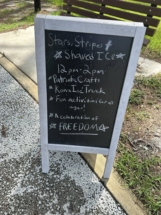 Stars Stripes
& Shaved ICe
12pm-2pm
*Patriotic Crafts
*Kona Ice Truck
*Fun activities for all
ages!
*A celebration of
*FREEDOM*